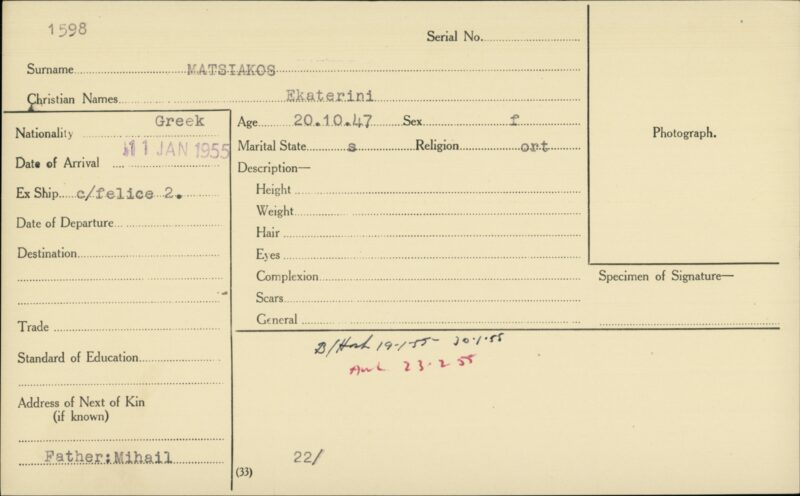 1598
Serial No.
Surname MATSIAKOS
Christian Names Ekaterini
Nationality Greek
Date of Arrival 11 JAN 1955
Ex Ship c/felice 2.
Date of Departure
Destination
Trade
Standard of Education
Address of Next of Kin
(if known)
Father:Mihail
Age 20.10.47 Sex f
Marital State s Religion ort
Description—
Height
Weight
Hair
Eyes
Complexion
Scars
General
Photograph.
Specimen of Signature—
19-1-55 - 30-1-55
23-2-55
22/
(33)